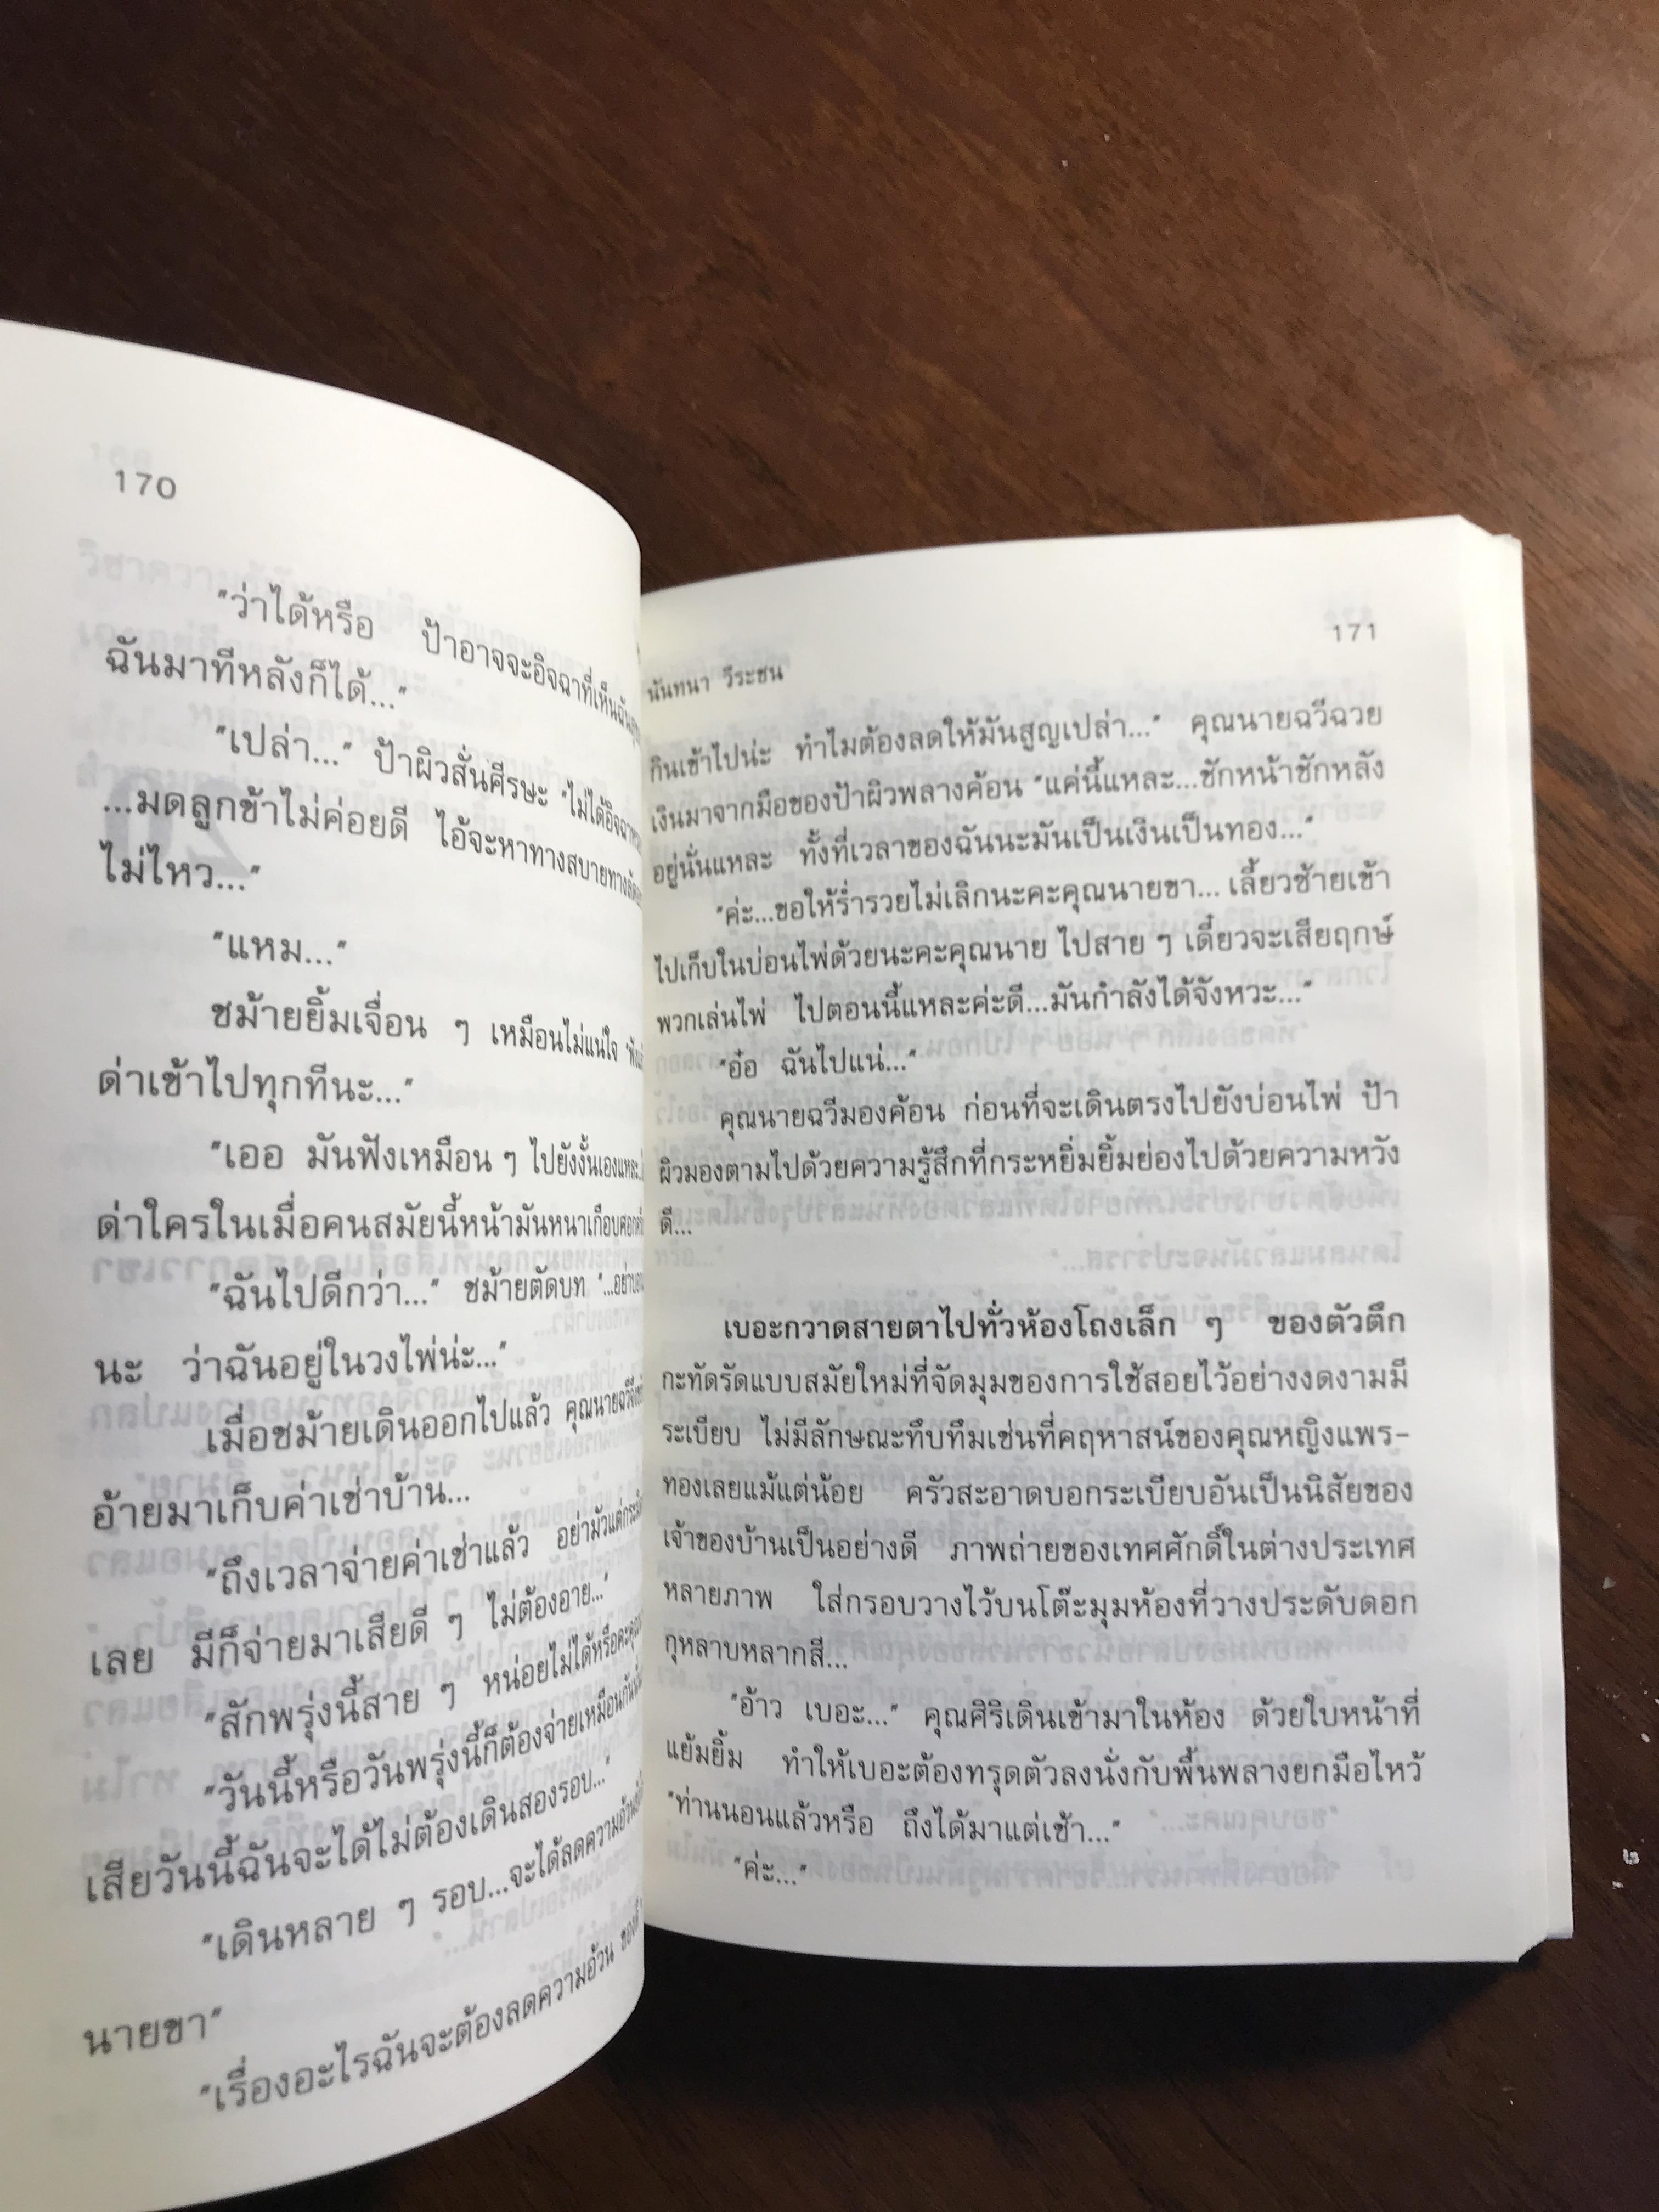 170
"ว่าได้หรือ ป้าอาจจะอิจฉาที่เห็นฉัน
ฉันมาทีหลังก็ได้..."
"เปล่า..." ป้าผิวสั่นศีรษะ "ไม่ได้อิจฉา
...มดลูกข้าไม่ค่อยดี ไอ้จะหาทางสบายทางลัด
ไม่ไหว..."
"แหม..."
ชม้ายยิ้มเจื่อน ๆ เหมือนไม่แน่ใจ
ด่าเข้าไปทุกทีนะ..."
"เออ มันฟังเหมือน ๆ ไปยังงั้นเองแหละ...
ด่าใครในเมื่อคนสมัยนี้หน้ามันหนาเกือบศอก
"ฉันไปดีกว่า..." ชม้ายตัดบท "...อย่าบอก
นะ ว่าฉันอยู่ในวงไพ่น่ะ..."
เมื่อชม้ายเดินออกไปแล้ว คุณนายฉวี
อ้ายมาเก็บค่าเช่าบ้าน...
"ถึงเวลาจ่ายค่าเช่าแล้ว อย่ามัวแต่
เลย มีก็จ่ายมาเสียดี ๆ ไม่ต้องอาย..."
"สักพรุ่งนี้สาย ๆ หน่อยไม่ได้หรือคะคุณ
"วันนี้หรือวันพรุ่งนี้ก็ต้องจ่ายเหมือนกัน
เสียวันนี้ฉันจะได้ไม่ต้องเดินสองรอบ..."
"เดินหลาย ๆ รอบ...จะได้ลดความอ้วน
นายขา"
"เรื่องอะไรฉันจะต้องลดความอ้วน ของ
171
นันทนา วีระชน
กินเข้าไปน่ะ ทำไมต้องลดให้มันสูญเปล่า..." คุณนายฉวีฉวย
เงินมาจากมือของป้าผิวพลางค้อน "แค่นี้แหละ...ชักหน้าชักหลัง
อยู่นั่นแหละ ทั้งที่เวลาของฉันนะมันเป็นเงินเป็นทอง..."
"ค่ะ...ขอให้ร่ำรวยไม่เลิกนะคะคุณนายขา... เลี้ยวซ้ายเข้า
ไปเก็บในบ่อนไพ่ด้วยนะคะคุณนาย ไปสาย ๆ เดี๋ยวจะเสียฤกษ์
พวกเล่นไพ่ ไปตอนนี้แหละค่ะดี...มันกำลังได้จังหวะ..."
"อ๋อ ฉันไปแน่..."
คุณนายฉวีมองค้อน ก่อนที่จะเดินตรงไปยังบ่อนไพ่ ป้า
ผิวมองตามไปด้วยความรู้สึกที่กระหยิ่มยิ้มย่องไปด้วยความหวัง
ดี...
เบอะกวาดสายตาไปทั่วห้องโถงเล็ก ๆ ของตัวตึก
กะทัดรัดแบบสมัยใหม่ที่จัดมุมของการใช้สอยไว้อย่างงดงามมี
ระเบียบ ไม่มีลักษณะทึบทึมเช่นที่คฤหาสน์ของคุณหญิงแพร-
ทองเลยแม้แต่น้อย ครัวสะอาดบอกระเบียบอันเป็นนิสัยของ
เจ้าของบ้านเป็นอย่างดี ภาพถ่ายของเทศศักดิ์ในต่างประเทศ
หลายภาพ ใส่กรอบวางไว้บนโต๊ะมุมห้องที่วางประดับดอก
กุหลาบหลากสี...
"อ้าว เบอะ..." คุณศิริเดินเข้ามาในห้อง ด้วยใบหน้าที่
แย้มยิ้ม ทำให้เบอะต้องทรุดตัวลงนั่งกับพื้นพลางยกมือไหว้
"ท่านนอนแล้วหรือ ถึงได้มาแต่เช้า..."
"ค่ะ..."